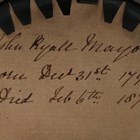 John Ryall Mayo
Born Decr 31st 179
Died Feb 6th 18